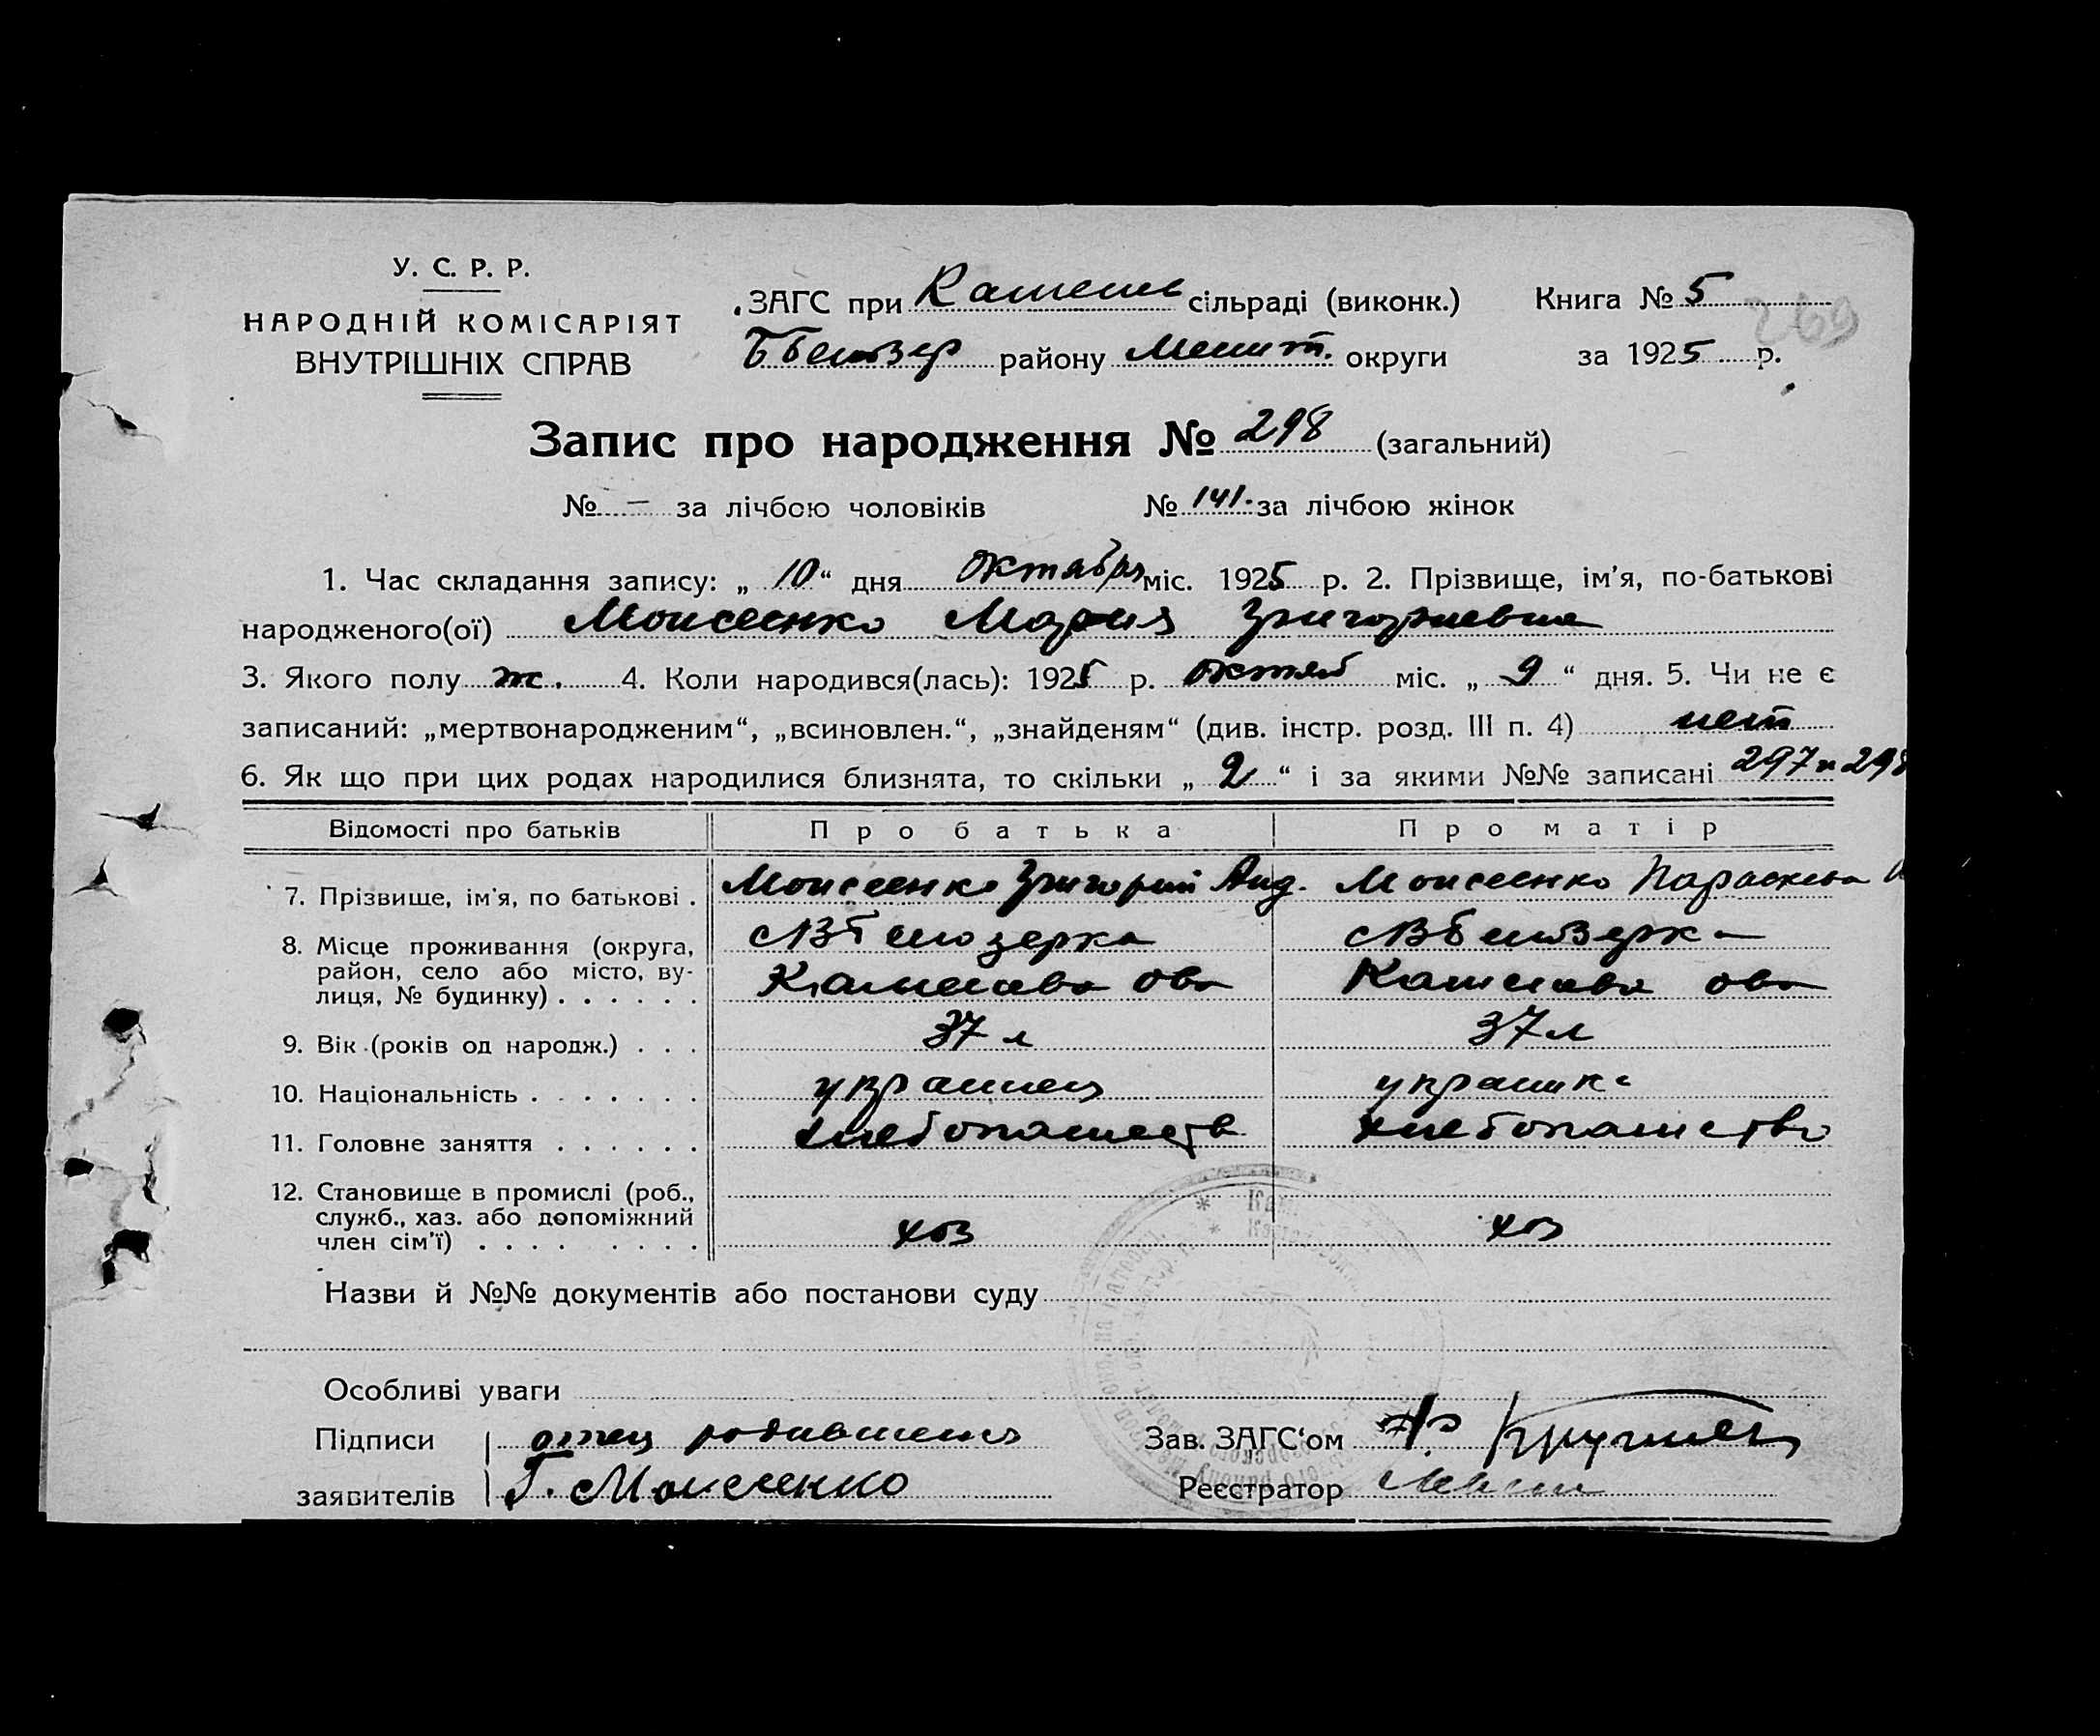 У. С. Р. Р.
НАРОДНІЙ КОМІСАРІЯТ
ВНУТРІШНІХ СПРАВ
ЗАГС при сільраді (виконк.) Книга № 5
району Мелит. округи за 1925 р.
269
Запис про народження № 298 (загальний)
№ – за лічбою чоловіків № 141. за лічбою жінок
1. Час складання запису: „ 10 “ дня октября міс. 1925 р. 2. Прізвище, ім'я, по-батькові
народженого(ої) Моисеенко Мария Григориевна
3. Якого полу ж. 4. Коли народився(лась): 1925 р. октяб міс. „ 9 “ дня. 5. Чи не є
записаний: „мертвонародженим“, „всиновлен.“, „знайденям“ (див. інстр. розд. III п. 4) нет
6. Як що при цих родах народилися близнята, то скільки „ 2 “ і за якими №№ записані 297 и 298
Відомості про батьків Про батька Про матір
7. Прізвище, ім'я, по батькові . Моисеенко Григорий Анд. Моисеенко Параскева
8. Місце проживання (округа, район, село або місто, вулиця, № будинку) . . . . . . с В Белозерка с В Белозерка
9. Вік (років од народж.) . . . 37 л 37 л
10. Національність . . . . . . . украинец украинка
11. Головне заняття . . . . . . хлебопашеств хлебопашество
12. Становище в промислі (роб., служб., хаз. або допоміжний член сім'ї) . . . . . . . . хоз хоз
Назви й №№ документів або постанови суду
Особливі уваги
Підписи отец Зав. ЗАГС‘ом
заявителів Г. Моисеенко Реєстратор